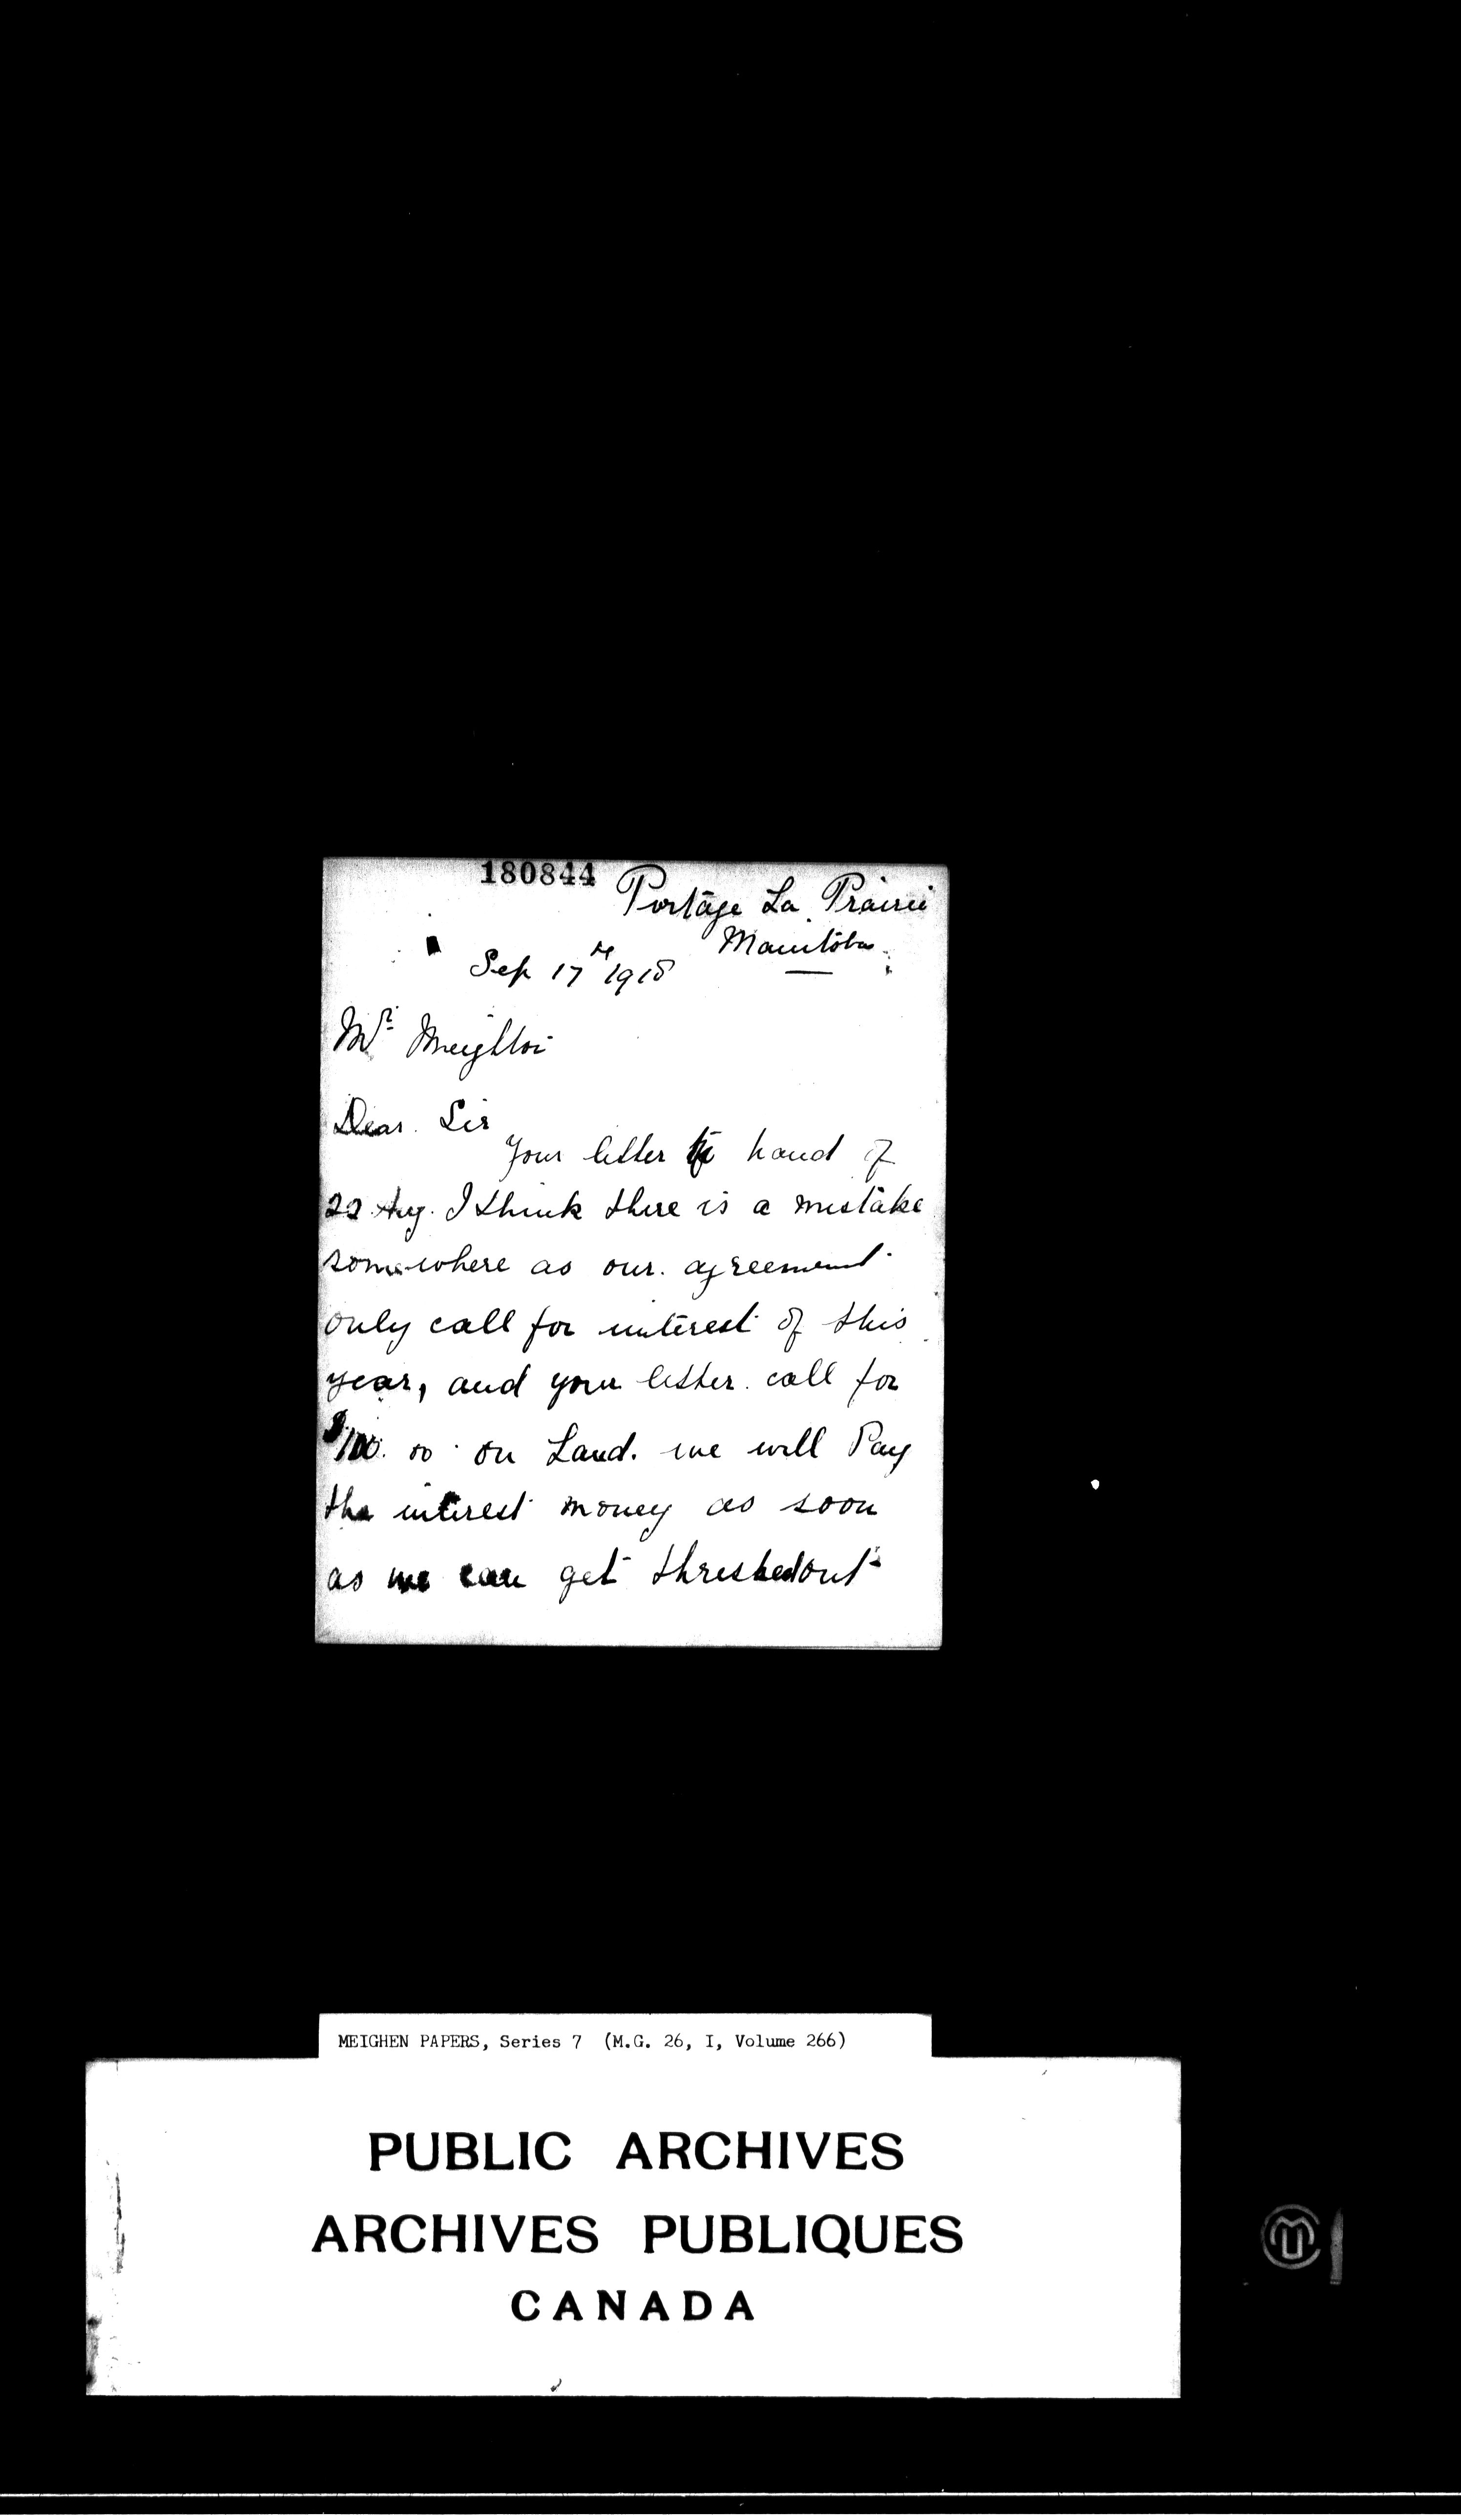 180844
Portage La Prairie
Manitoba
Sep 17th 1918
Mr
Dear Sir
Your letter to hand of
22 Aug. I think there is a mistake
somewhere as our agreement
only call for interest of this
year, and your letter call for
$100.00 on Land. we will Pay
the interest money as soon
as we can get threshedout
MEIGHEN PAPERS, Series 7 (M.G. 26, I, Volume 266)
PUBLIC ARCHIVES
ARCHIVES PUBLIQUES
CANADA